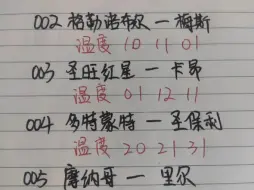 002 格勒诺布尔 — 梅斯
温度 10 11 01
003 圣旺红星 — 卡昂
温度 01 12 11
004 多特蒙特 — 圣保利
温度 20 21 31
005 摩纳哥 — 里尔